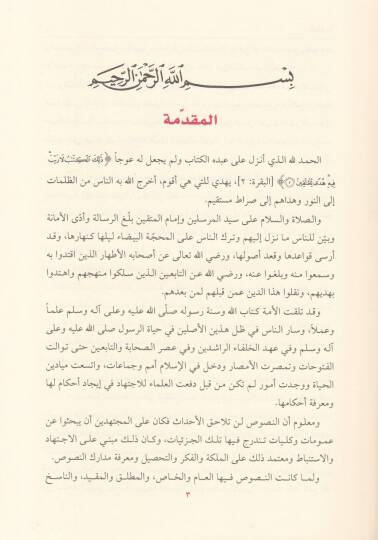 بسم الله الرحمن الرحيم
المقدّمة
الحمد لله الذي أنزل على عبده الكتاب ولم يجعل له عوجاً ﴿ذَلِكَ الْكِتَابُ لَا رَيْبَ
فِيهِ هُدًى لِلْمُتَّقِينَ ٢﴾ [البقرة: ٢]، يهدي للتي هي أقوم، أخرج الله به الناس من الظلمات
إلى النور وهداهم إلى صراط مستقيم.
والصلاة والسلام على سيد المرسلين وإمام المتقين بلّغ الرسالة وأدّى الأمانة
وبيّن للناس ما نزل إليهم وترك الناس على المحجّة البيضاء ليلها كنهارها، وقد
أرسى قواعدها وقعد أصولها، ورضي الله تعالى عن أصحابه الأطهار الذين اقتدوا به
وسمعوا منه وبلغوا عنه، ورضي الله عن التابعين الذين سلكوا منهجهم واهتدوا
بهديهم، ونقلوا هذا الدين عمن قبلهم لمن بعدهم.
وقد تلقت الأمة كتاب الله وسنة رسوله صلّى الله عليه وعلى آله وسلم علماً
وعملاً، وسار الناس في ظل هذين الأصلين في حياة الرسول صلى الله عليه وعلى
آله وسلم وفي عهد الخلفاء الراشدين وفي عصر الصحابة والتابعين حتى توالت
الفتوحات وتمصرت الأمصار ودخل في الإسلام أمم وجماعات، واتسعت ميادين
الحياة ووجدت أمور لم تكن من قبل دفعت العلماء للاجتهاد في إيجاد أحكام لها
ومعرفة أحكامها.
ومعلوم أن النصوص لن تلاحق الأحداث فكان على المجتهدين أن يبحثوا عن
عمومات وكليات تندرج فيها تلك الجزئيات، وكان ذلك مبني على الاجتهاد
والاستنباط ومعتمد ذلك على الملكة والفكر والتحصيل ومعرفة مدارك النصوص.
ولما كانت النصوص فيها العام والخاص، والمطلق والمقيد، والناسخ
٣